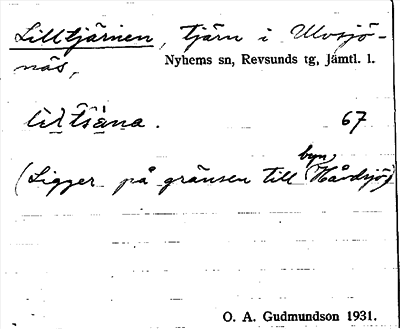 Lilltjärnen, tjärn i Ulvsjö-
näs,
Nyhems sn, Revsunds tg, Jämtl. l.
67
(Ligger på gränsen till byn Håvdsjö)
O. A. Gudmundson 1931.